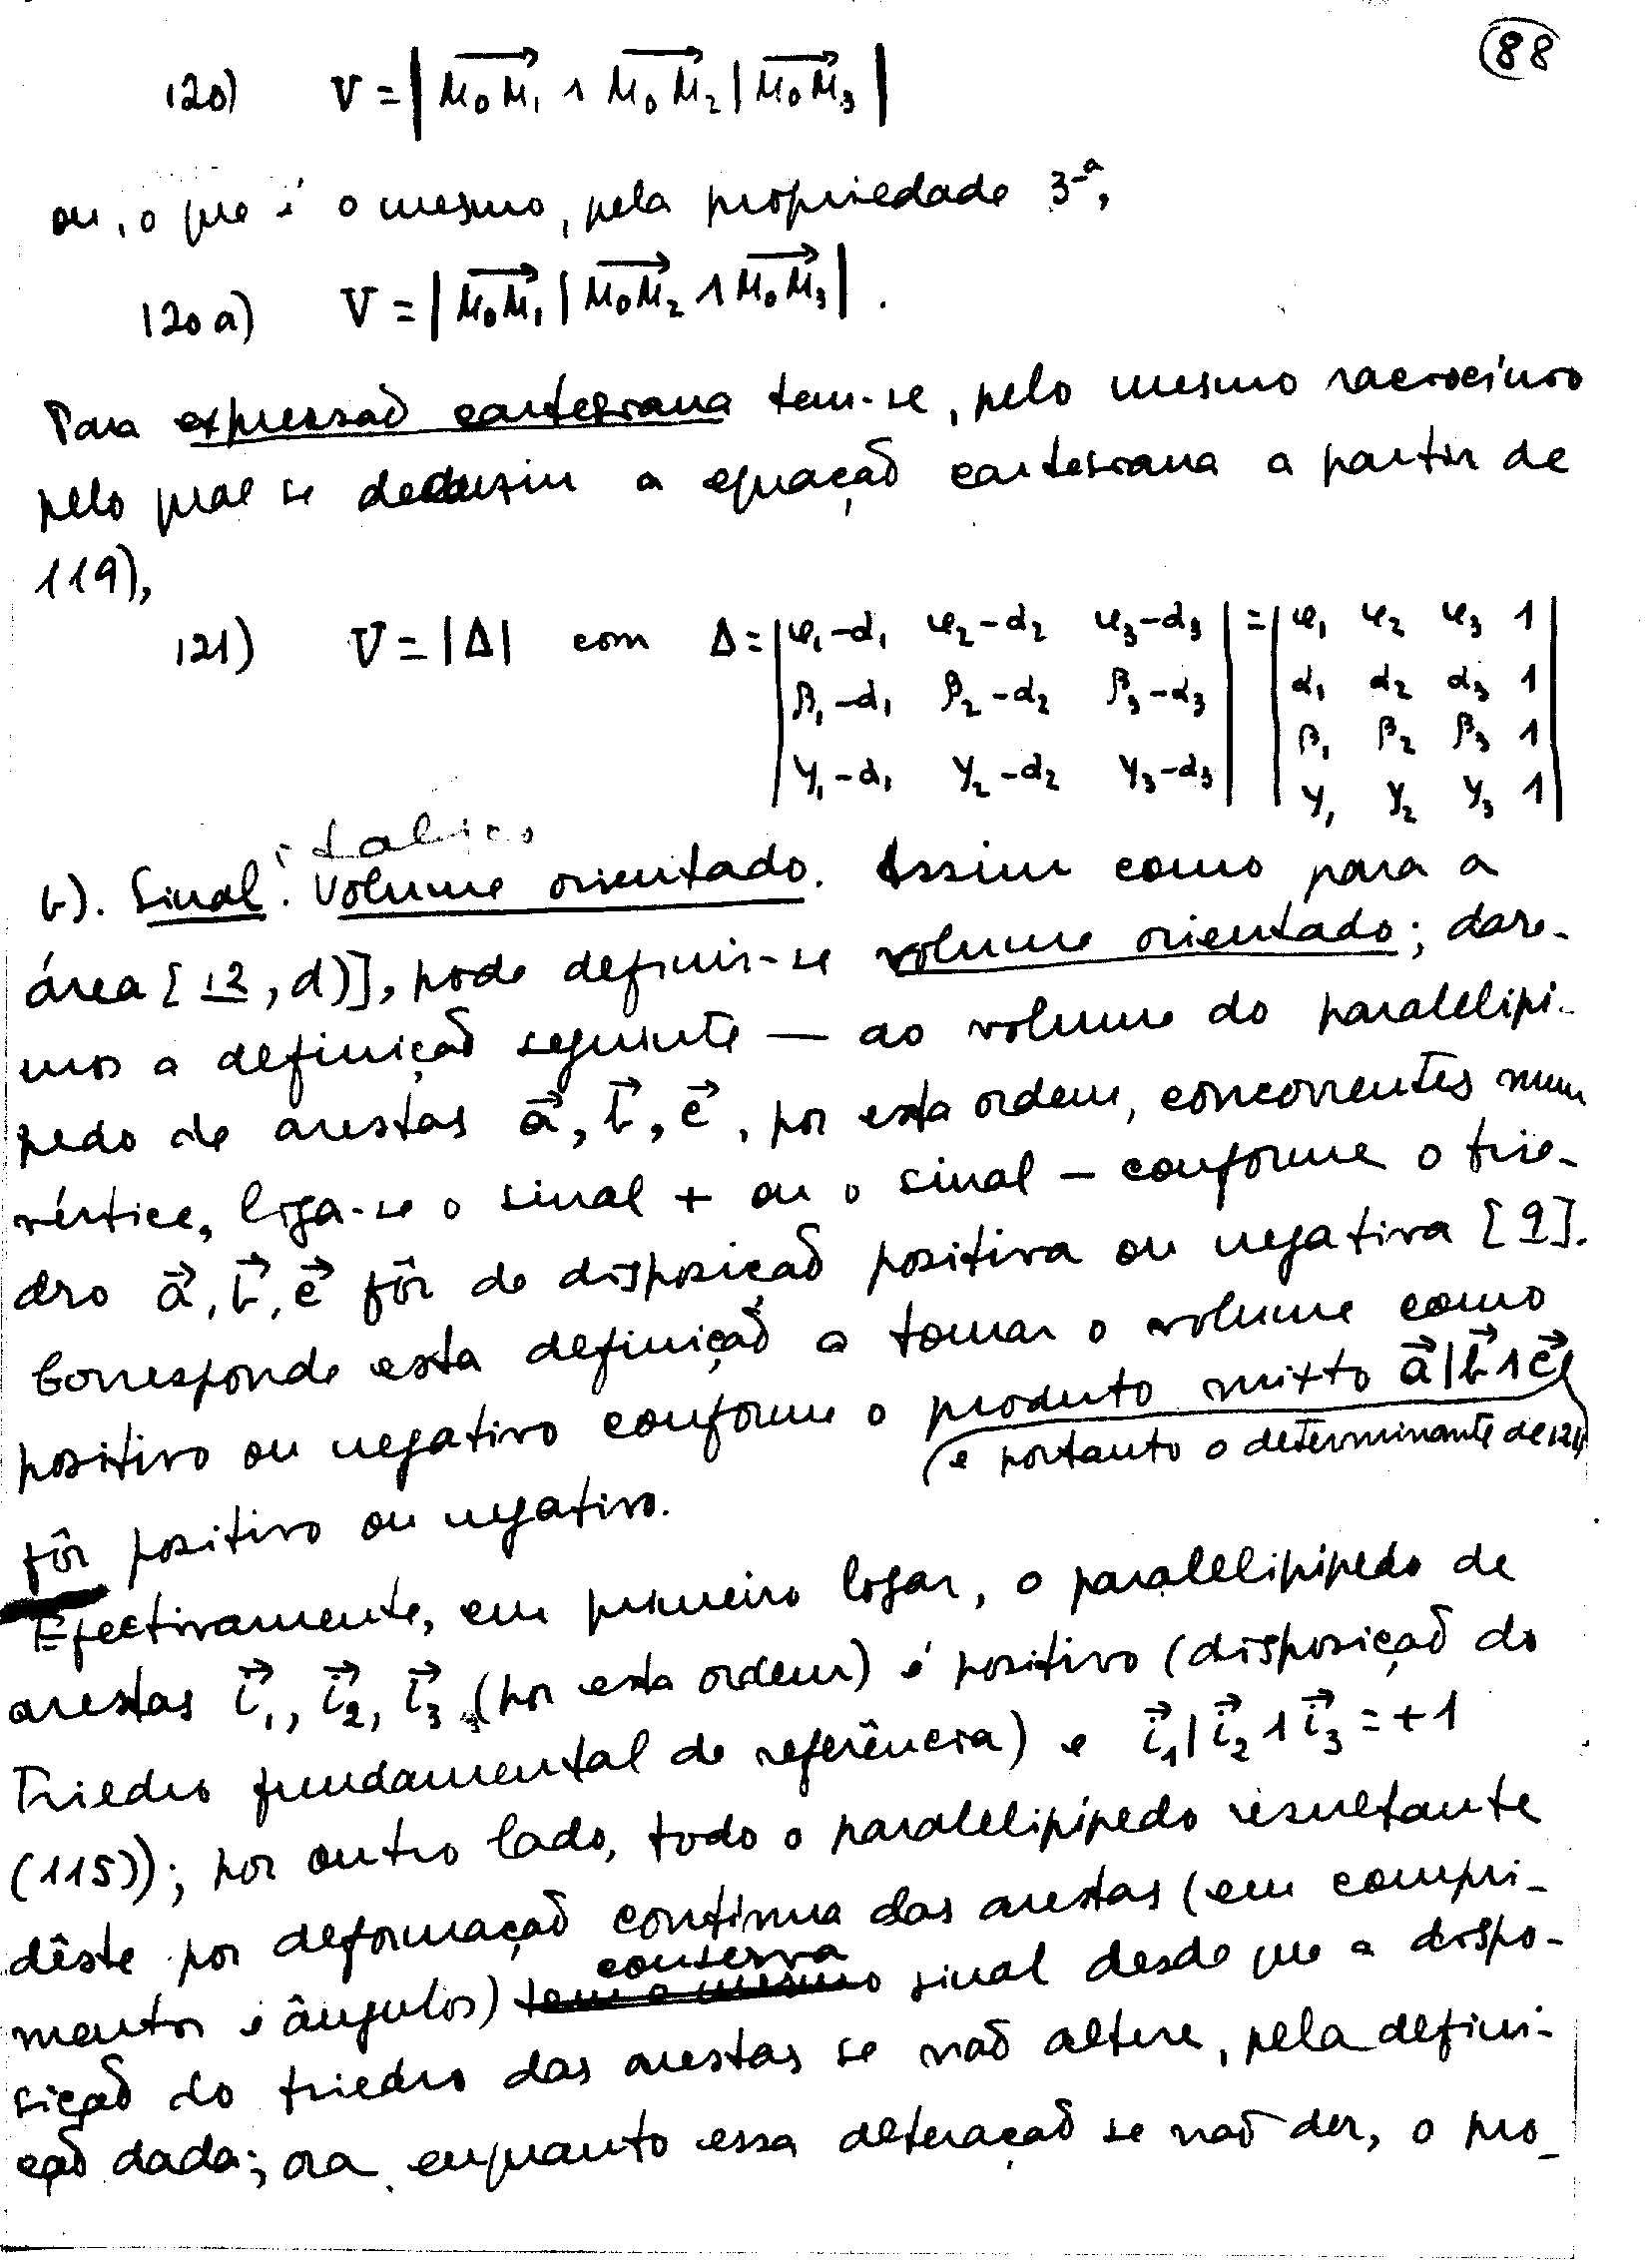 88
120) V = | M₀M₁ ∧ M₀M₂ | M₀M₃ |
ou, o que é o mesmo, pela propriedade 3-ª,
120a) V = | M₀M₁ | M₀M₂ ∧ M₀M₃ | .
Para expressão cartesiana tem-se, pelo mesmo raciocínio
pelo qual se deduziu a equação cartesiana a partir de
119),
121) V = |Δ| com Δ = | φ₁-α₁ φ₂-α₂ φ₃-α₃ | = | φ₁ φ₂ φ₃ 1 |
| β₁-α₁ β₂-α₂ β₃-α₃ | | α₁ α₂ α₃ 1 |
| γ₁-α₁ γ₂-α₂ γ₃-α₃ | | β₁ β₂ β₃ 1 |
| γ₁ γ₂ γ₃ 1 |
italico
b). Sinal. Volume orientado. Assim como para a
área [12, d)], pode definir-se volume orientado; dare-
mos a definição seguinte — ao volume do paralelipí-
pedo de arestas a⃗, b⃗, c⃗, por esta ordem, concorrentes num
vértice, liga-se o sinal + ou o sinal - conforme o trie-
dro a⃗, b⃗, c⃗ fôr de disposição positiva ou negativa [9].
Corresponde esta definição a tomar o volume como
positivo ou negativo conforme o produto mixto a⃗|b⃗∧c⃗
(e portanto o determinante de 121)
fôr positivo ou negativo.
Efectivamente, em primeiro logar, o paralelipípedo de
arestas i⃗₁, i⃗₂, i⃗₃ (por esta ordem) é positivo (disposição do
Triedro fundamental de referência) e i⃗₁|i⃗₂∧i⃗₃ = +1
(115)); por outro lado, todo o paralelipípedo resultante
dêste por deformação contínua das arestas (em compri-
conserva
mentos e ângulos) tem o mesmo sinal desde que a dispo-
sição do triedro das arestas se não altere, pela defini-
ção dada; ora enquanto essa alteração se não der, o pro-